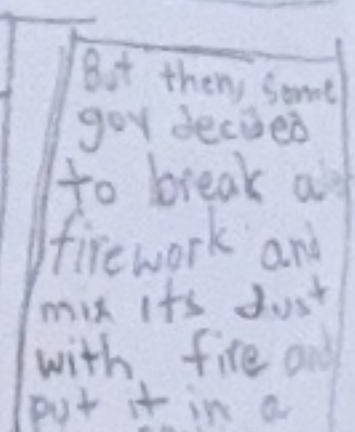 But then, some
goy decided
to break a
firework and
mix its dust
with fire and
put it in a